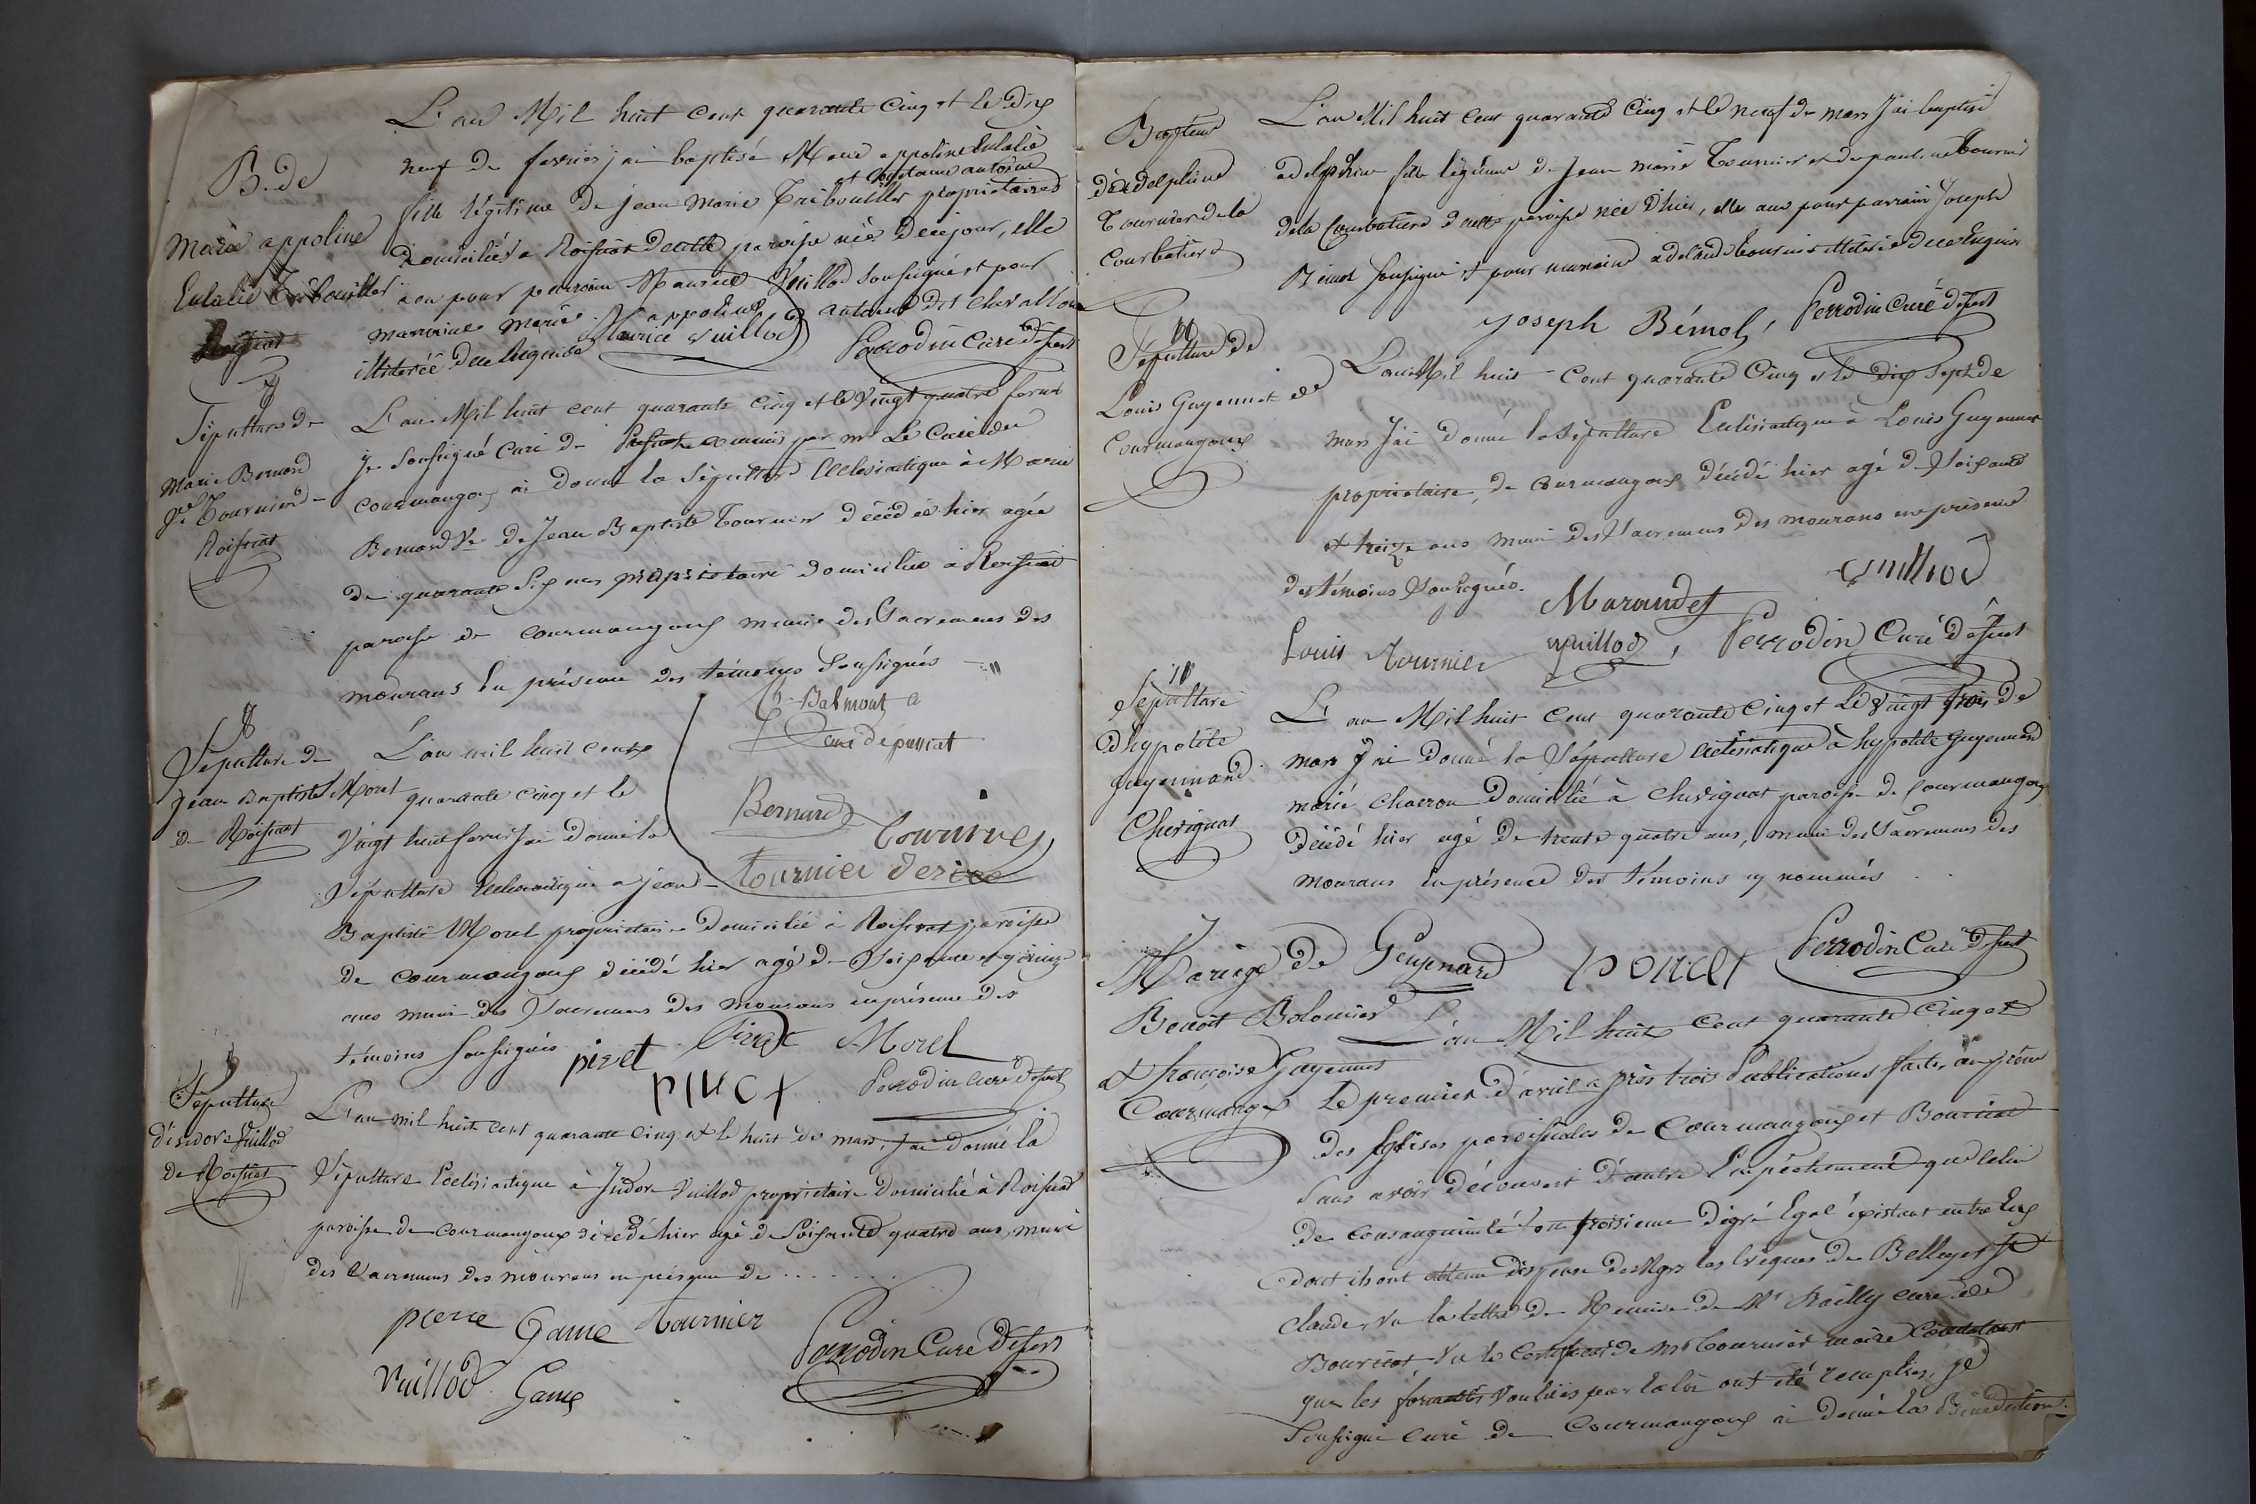 B. de
Marie appoline
Eulalie Tribouillet
Roissiat
L'an Mil huit cent quarante Cinq et le dix
neuf de fevrier j'ai baptisé Marie appoline Eulalie
fille légitime de jean Marie Tribouillet et antoine propriétaires
Domiciliés a Roissiat de cette paroisse née de ce jour, elle
a eu pour parrain Maurice Vuillod soussigné et pour
marraine marie appoline
illiterée de ce Requise Maurice Vuillod Perrodin Curé
7
Sépulture de
Marie Bernard
Ve Tournier
Roissiat
L'an Mil huit cent quarante cinq et le vingt quatre fevrier
je soussigné Curé de commis par Mr Le Curé de
courmangoux ai donné la sépulture Ecclesiastique à Marie
Bernard Ve de Jean Baptiste Tournier décédée hier agée
de quarante six ans propriétaire domiciliée à Roissiat
paroisse de courmangoux munie des Sacremens des
mourans En présence des témoins soussignés
Balmont
curé de pressiat
Bernard
Tournier
tournier
8
Sépulture de
jean Baptiste Morel
de Roissiat
L'an mil huit cent
quarante cinq et le
Vingt huit fevrier j'ai donné la
Sépulture Ecclesiastique a jean
Baptiste Morel propriétaire domicilié à Roissiat paroisse
de courmangoux décédé hier agé de soixante et quinze
ans muni des Sacremens des mourans en présence des
témoins soussignés piret Morel
Perrodin curé
9
Sépulture
d'isidore Vuillod
de Roissiat
L'an mil huit cent quarante cinq et le huit de mars, j'ai donné la
Sépulture Ecclésiastique à Isidor Vuillod propriétaire domicilié à Roissiat
paroisse de courmangoux décédé hier agé de soixante quatre ans, muni
des Sacremens des mourans en présence de
pierre Game tournier
Vuillod Game
Perrodin Curé
Baptême
de adelphine
Tournier de la
Courbatiere
L'an Mil huit cent quarante Cinq et le neuf de mars J'ai baptisé
adelphine fille légitime de Jean marie Tournier et de
de la Courbatiere de cette paroisse née d'hier, elle a eu pour parrain Joseph
Bémol soussigné et pour marraine tournier illiterée de ce Enquise
Joseph Bémol, Perrodin Curé
Sépulture de
Louis Guyennet de
Courmangoux
L'an Mil huit Cent quarante Cinq et le dix sept de
mars J'ai donné la Sépulture Ecclésiastique à Louis Guyennet
propriétaire, de courmangoux décédé hier agé de soixante
et treize ans muni des Sacremens des mourans en présence
des témoins soussignés. Marandet Vuillod
Louis tournier vuillod, Perrodin Curé
Sépulture
d'hypolite
guyennard
Chevignat
L'an Mil huit Cent quarante Cinq et le vingt trois de
mars J'ai donné la Sépulture Ecclésiastique à hypolite guyennard
marié, charron domicilié à Chevignat paroisse de Courmangoux
décédé hier agé de trente quatre ans, muni des Sacremens des
mourans En présence des témoins cy nommés
poncet Perrodin Curé
Mariage de
Benoit Bolomier
et françoise Guyennet
Courmangoux
L'an Mil huit Cent quarante Cinq et
le premier d'avril après trois Publications faites au prône
des Eglises paroissiales de Courmangoux et Bourciat
Sans avoir découvert d'autre Empêchement que celui
de consanguinité du troisieme dégré Egal existant entre Eux
dont ils ont obtenu dispense de Mgrs les Evêques de Belley et St
Claude, vu la lettre de Remise de Mr Railly curé de
Bourciat, vu le certificat de Mr Tournier maire Constatant
que les formalités voulues par la loi ont été remplies, je
Soussigné curé de Courmangoux ai donné la Bénédiction